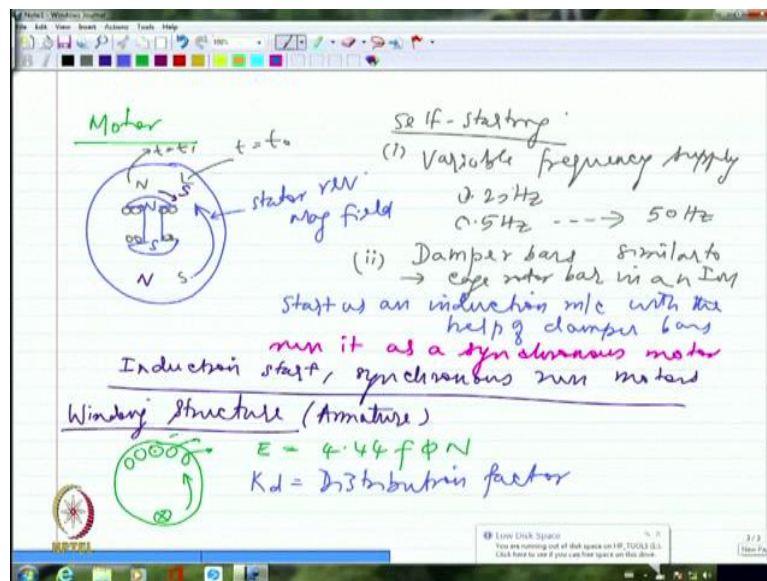 Note1 - Windows Journal
File Edit View Insert Actions Tools Help
100%
Motor
t = t1
t = t0
N
S
N
S
N S
stator rev.
mag field
Self-starting
(i) Variable frequency supply
0.25Hz
0.5Hz ----> 50Hz
(ii) Damper bars similar to
→ cage rotor bar in an IM
Start as an induction m/c with the
help of damper bars
run it as a synchronous motor
Induction start, synchronous run motors
Winding Structure (Armature)
E = 4.44 f Φ N
Kd = Distribution factor
NPTEL
Low Disk Space
You are running out of disk space on HP_TOOLS (E:).
Click here to see if you can free space on this drive.
3/3